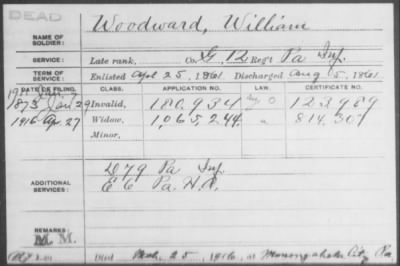 DEAD
Woodward, William
NAME OF SOLDIER:
SERVICE: Late rank, Co. G, 12 Regt Pa Inf.
TERM OF SERVICE: Enlisted Apl 25, 1861. Discharged Aug 5, 1861
DATE OF FILING. CLASS. APPLICATION NO. LAW. CERTIFICATE NO.
1873 Jan 29 Invalid, 180,934
1916 Ap. 27 Widow, 1,065,244 814,307
Minor,
ADDITIONAL SERVICES: D 79 Pa Inf
E 6 Pa. H.A.
REMARKS: M M.
Died Mch. 25, 1916, at Monongahela City Pa